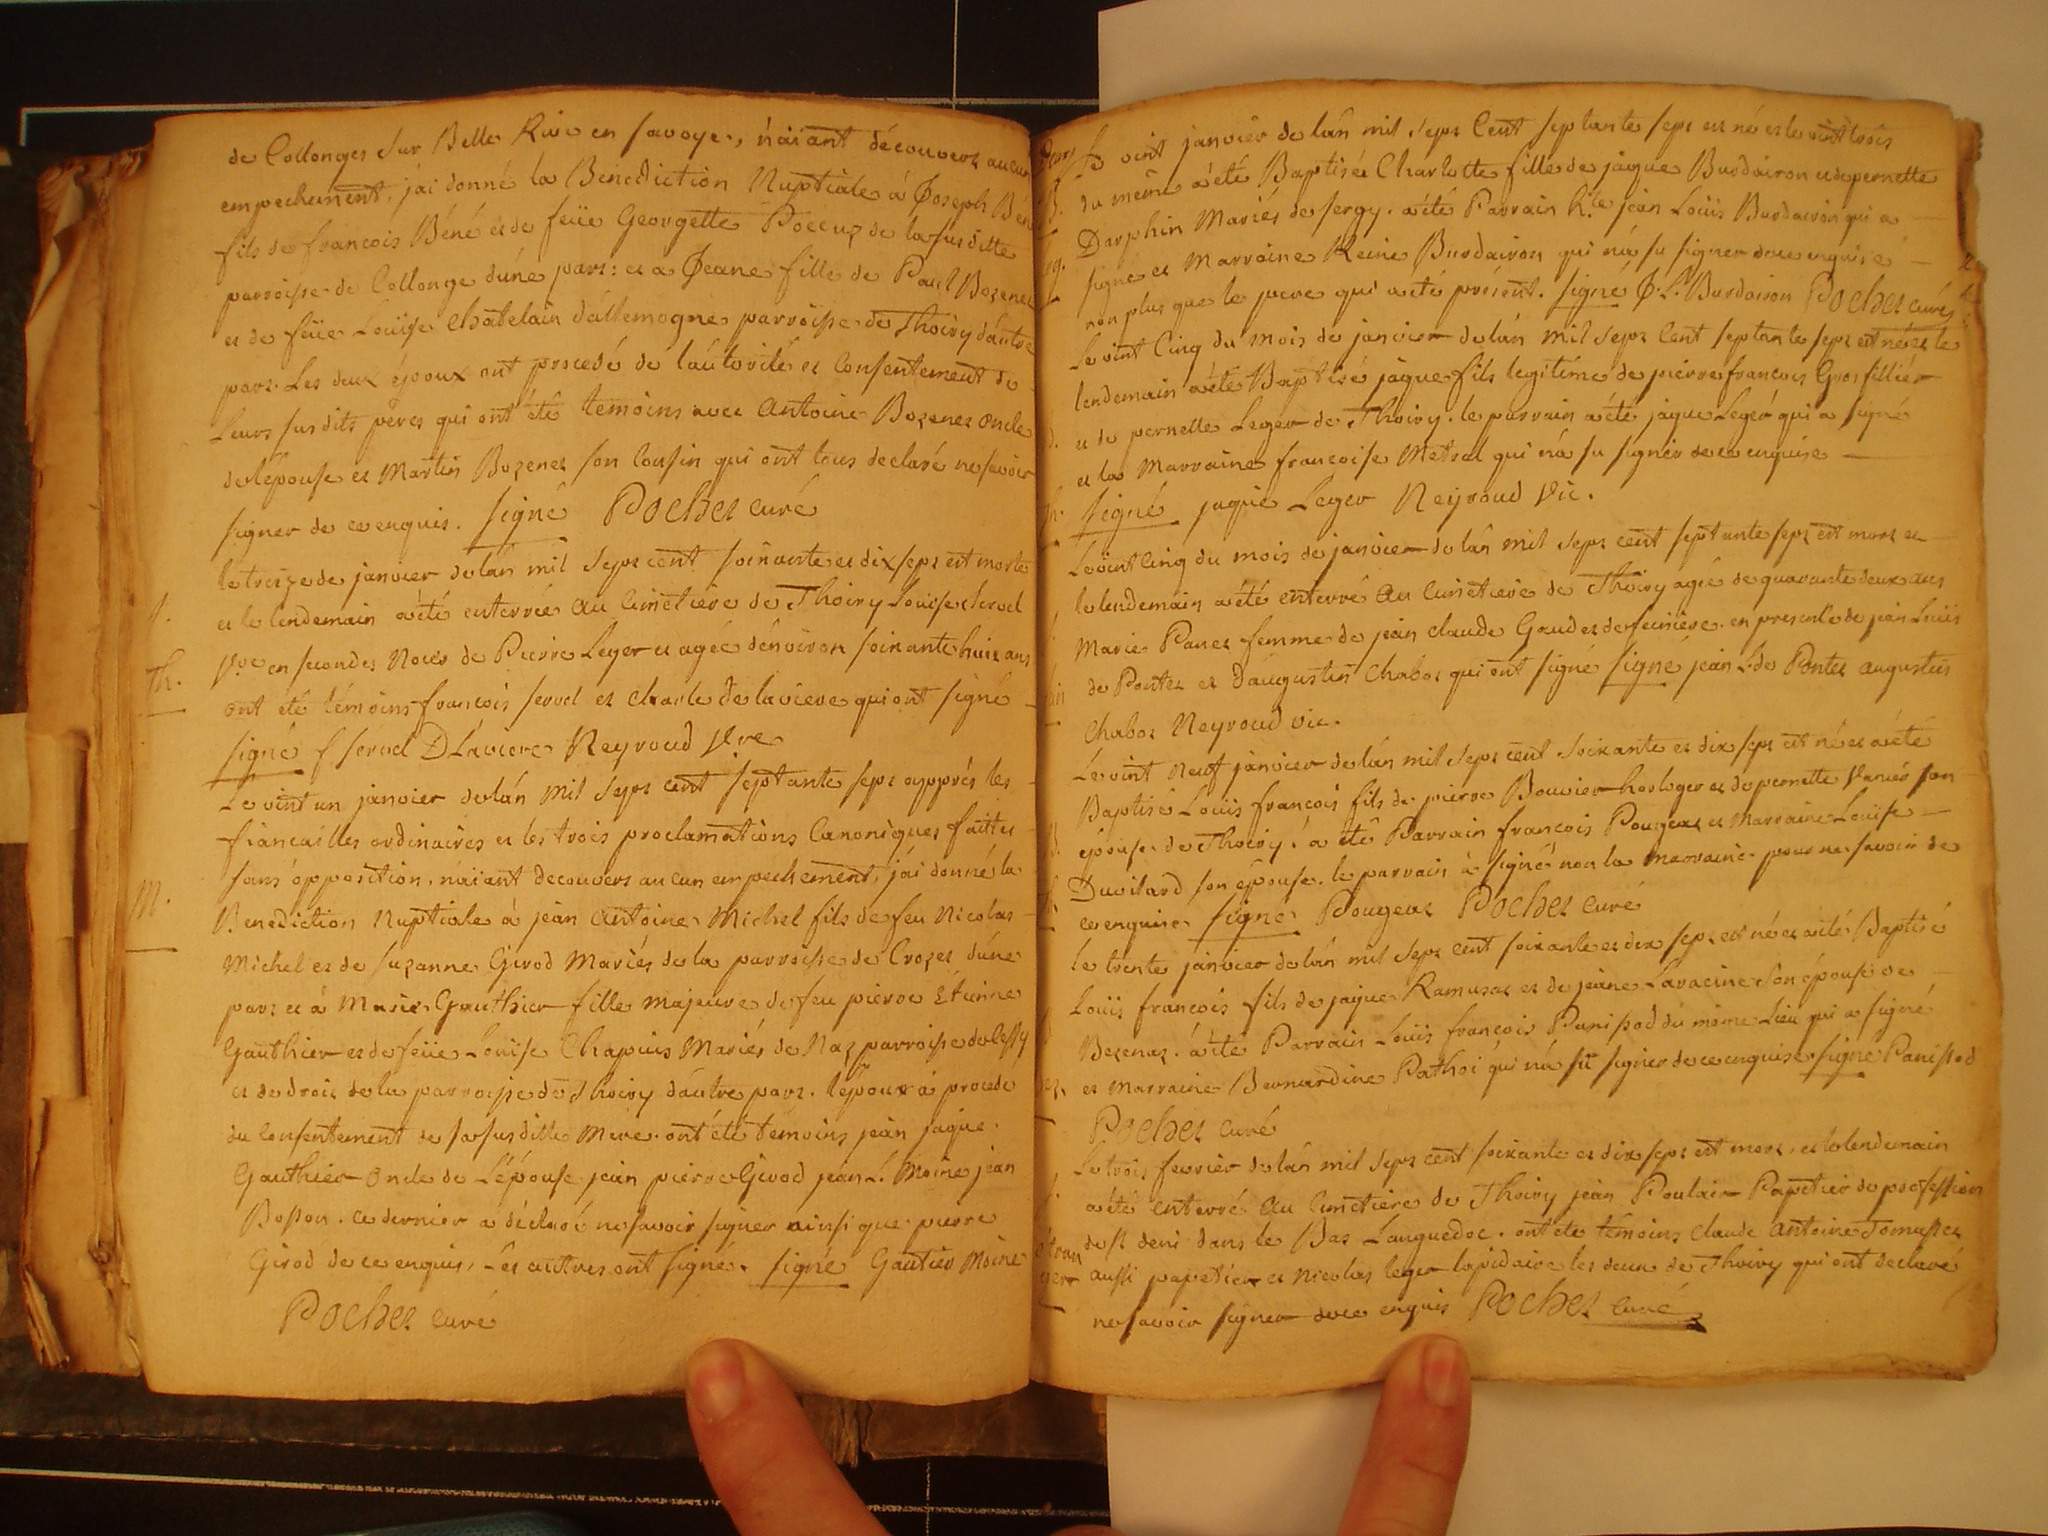 de Collonges sur Belle Rive en savoye, n'aiant découvert aucun
empechement, j'ai donné la Bénédiction Nuptiale à Joseph Béné
fils de francois Béné et de feüe Georgette de la susditte
parroisse de Collonge d'úne part: et a Jeane fille de Paul Bozenet
et de feüe Loüise Chatelain d'allemogne parroisse de Thoiry d'aútre
part. Les deux époux ont procedé de l'aútorité et Consentement de
Leurs susdits pères qui ont été temoins avec Antoine Bozenet oncle
de l'épouse et Martin Bozenet son Cousin qui ont tous declaré ne savoir
signer de ce enquis. signé Pochet curé
le treize de janvier de l'án mil sept cent soixante et dix sept est morte
et le lendemain a été enterrée au Cimetière de Thoiry Louise Servel
S.
Th.
Vve en secondes Noces de Pierre Leger et agée d'énviron soixante huit ans
ont été témoins francois servel et charle de laviere qui ont signé
signé f servel DLaviere Neyroud Vre
Le vint un janvier de l'án mil sept cent septante sept apprés les
fiancailles ordinaires et les trois proclamations Canoniques faites
sans opposition, n'aiant decouvert aucun empechement, j'ai donné la
M.
Benediction Nuptiale à jean antoine Michel fils de feu Nicolas
Michel et de suzanne Girod Mariés de la parroisse de Crozet d'úne
part et à Marie Gauthier fille majeure de feu pierre Etienne
Gauthier et de feüe Loüise Chapuis Mariés de Naz parroisse de Cessy
et de droit de la parroisse de Thoiry d'aútre part. l'époux à procedé
du Consentement de sa susditte Mere. ont été témoins jean jaque
Gauthier oncle de l'épouse jean pierre Girod jean L. Moine jean
Bosson. ce dernier a déclaré ne savoir signer ainsi que pierre
Girod de ce enquis, Les autres ont signé. signé Gautier Moine
Pochet curé
Le vint janvier de l'án mil sept Cent septante sept est né et le vint trois
B.
du même a été Baptisée Charlotte fille de jaque Burdairon et de pernette
Darphin Mariés de sergy. a été Parrain h.te jean Loüis Burdairon qui a
signé et Marraine Reine Burdairon qui n'a su signer de ce enquise
non plus que le pere qui a été présent. signé J. L. Burdairon Pochet curé
Le vint Cinq du mois de janvier de l'án mil sept Cent septante sept est né et le
lendemain a été Baptisé jaque fils legitime de pierre francois Grosfillier
et de pernette Leger de Thoiry. le parrain a été jaque Leger qui a signé
et la Marraine francoise Metral qui n'a su signer de ce enquise
signé jaque Leger Neyroud Vic.
Le vint Cinq du mois de janvier de l'án mil sept cent septante sept est mort et
le lendemain a été enterré au Cimetiere de Thoiry agée de quarante deux ans
Marie Panet femme de jean claude Gaudet de feniere. en presence de jean Loüis
de Pontet et d'augustin Chabot qui ont signé signé jean L. de Pontet augustin
Chabot Neyroud vic.
Le vint neuf janvier de l'án mil sept cent soixante et dix sept est né et a été
Baptisé Loüis francois fils de pierre Bouvier horloger et de pernette son
B.
épouse de Thoiry. a été Parrain francois Pougeat et Marraine Loüise
Duvilard son épouse. le parrain à signé non la marraine pour ne savoir de
ce enquise signé Pougeat Pochet curé
le trente janvier de l'án mil sept cent soixante et dix sept est né et a été Baptisé
Loüis francois fils de jaque Ramusat et de jeane Laracine son épouse de
Bezenaz. a été Parrain Loüis francois Panissod du même Lieu qui a signé
et marraine Bernardine Pathoi qui n'a sü signer de ce enquise signé Panissod
Pochet curé
Le trois fevrier de l'án mil sept cent soixante et dix sept est mort, et le lendemain
a été enterré au Cimetiere de Thoiry jean Poulair Papetier de profession
étran
ger
de st deni dans le Bas Languedoc. ont été témoins claude antoine Tomasset
aussi papetier et Nicolas leger lapidaire les deux de Thoiry qui ont declaré
ne savoir signer de ce enquis Pochet curé